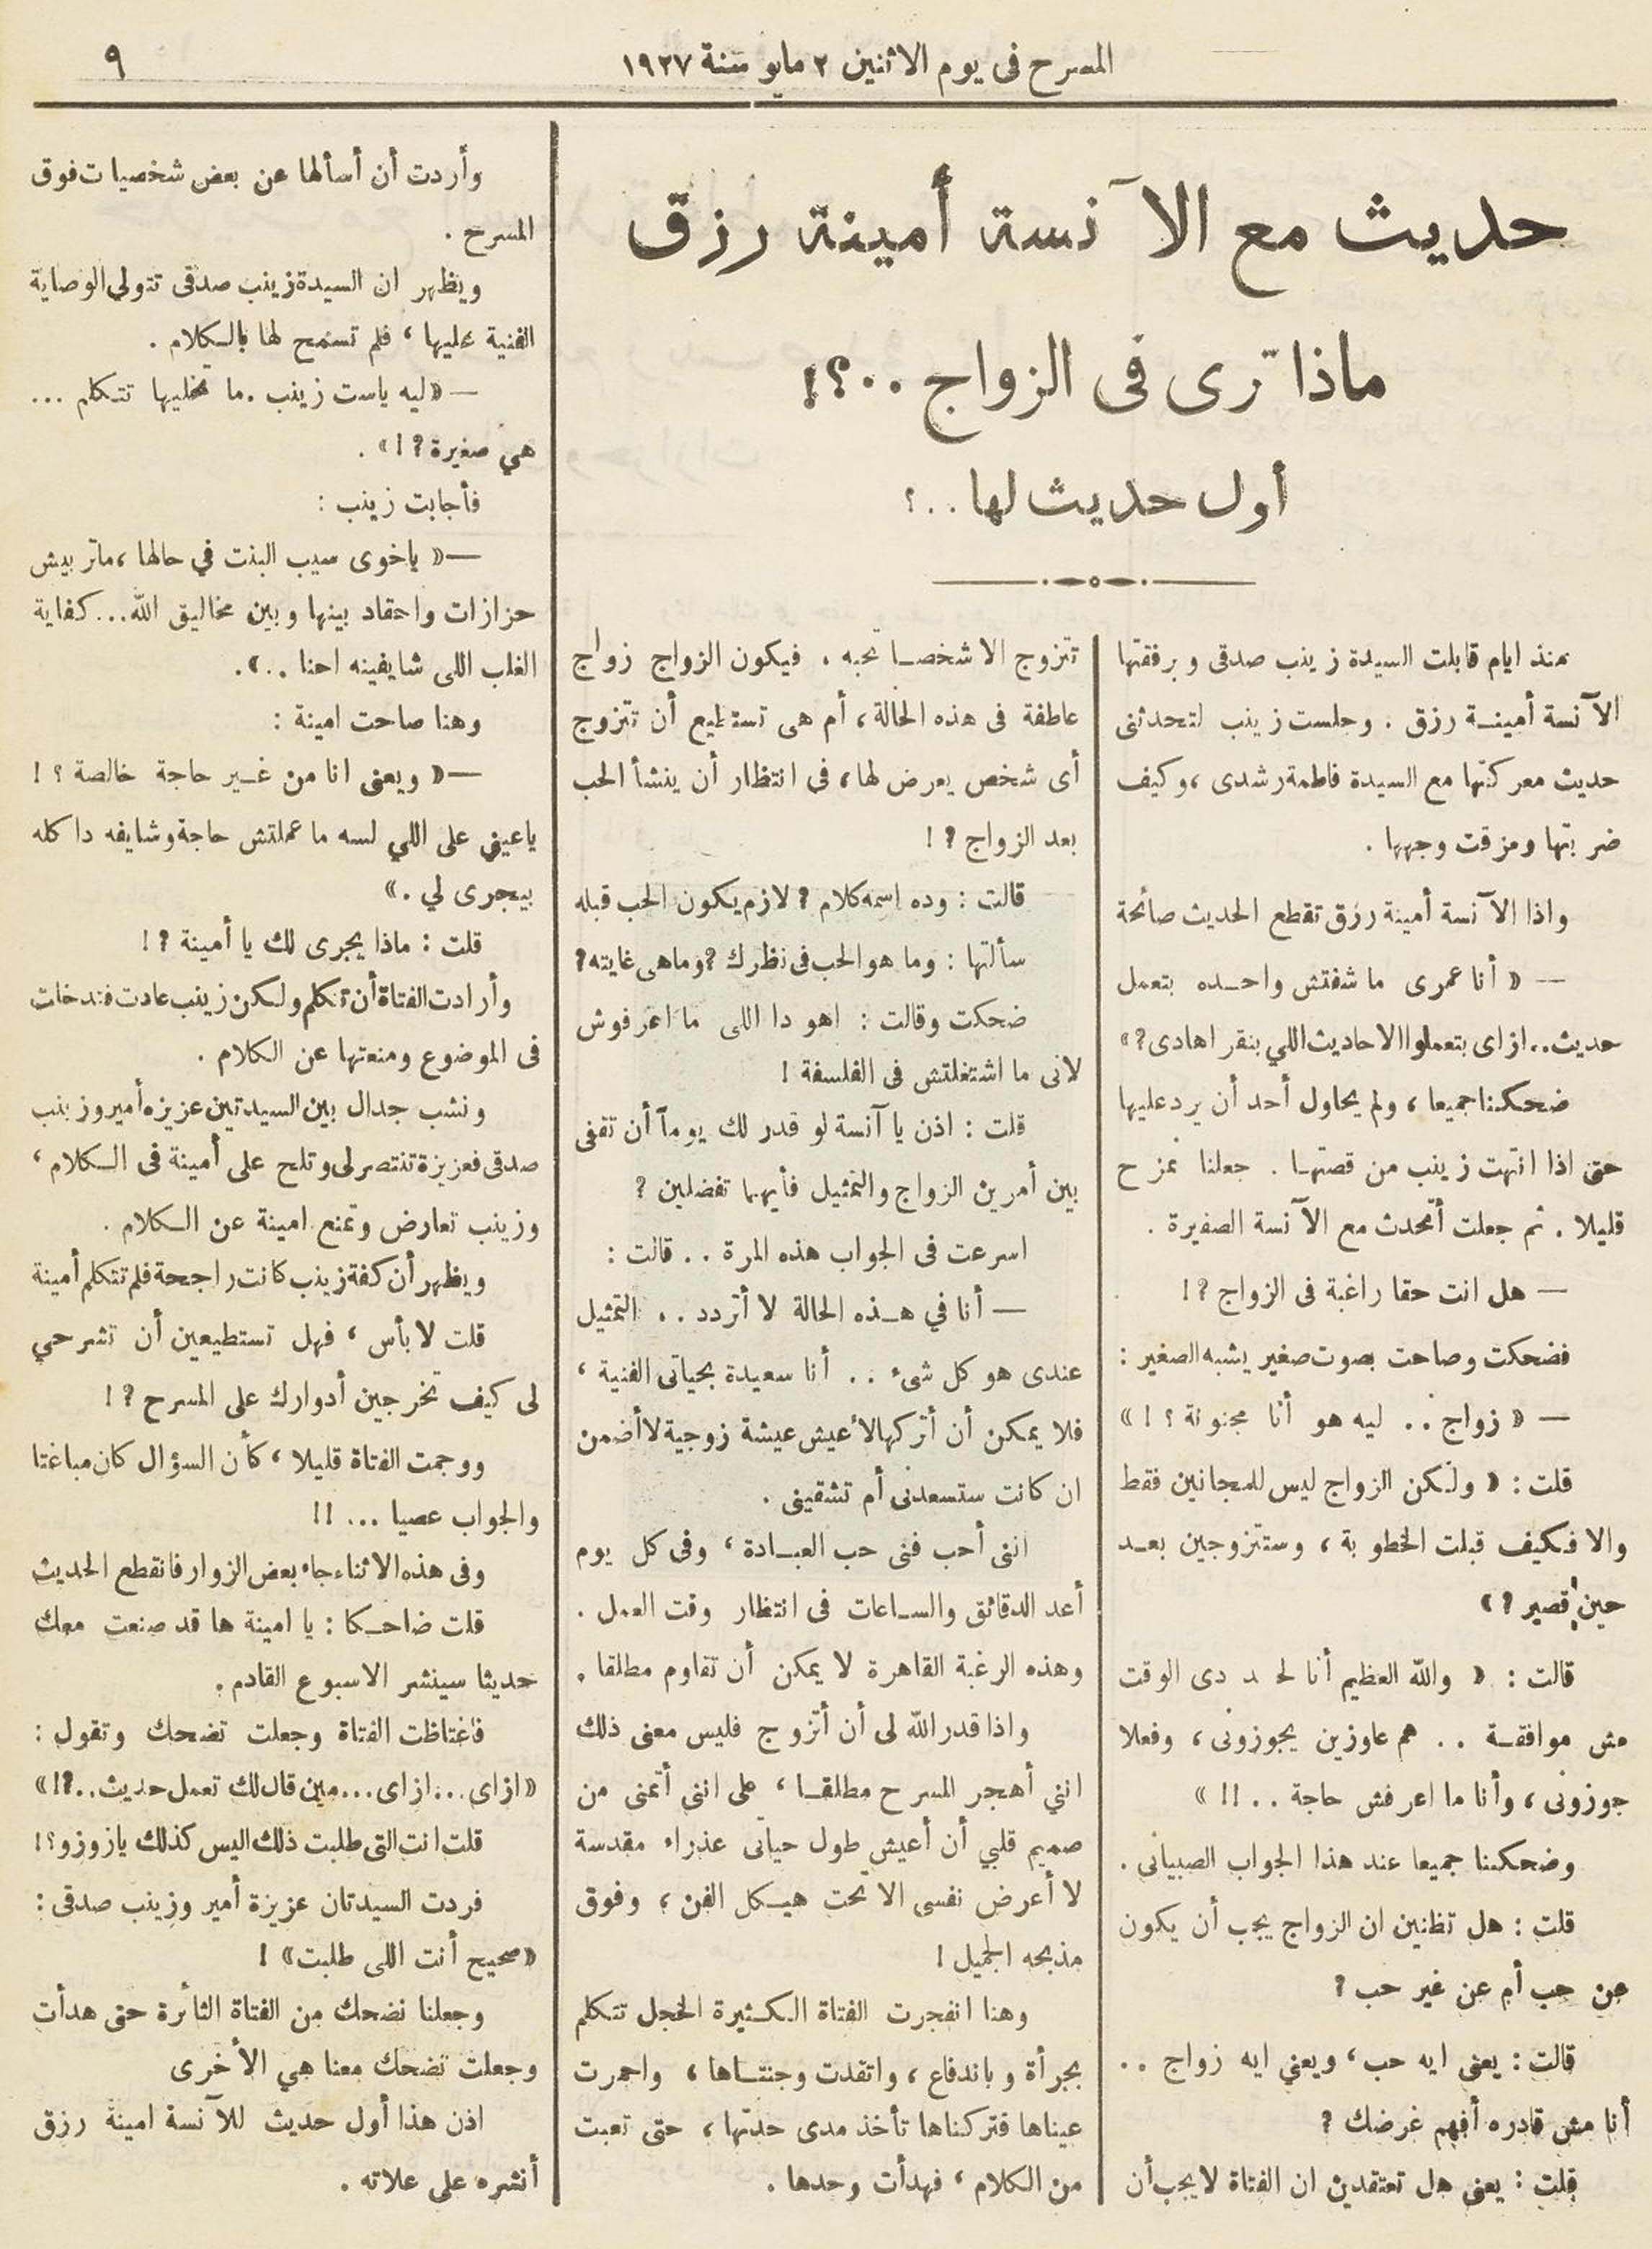 المسرح فى يوم الاثنين ٢ مايو سنة ١٩٢٧
٩
حديث مع الآنسة أمينة رزق
ماذا ترى فى الزواج ..؟!
أول حديث لها ..؟
منذ ايام قابلت السيدة زينب صدقى وبرفقتها
الآنسة أمينة رزق . وجلست زينب لتحدثنى
حديث معركتها مع السيدة فاطمة رشدى ، وكيف
ضربتها ومزقت وجهها .
واذا الآنسة أمينة رزق تقطع الحديث صائحة
— « أنا عمرى ما شفتش واحده بتعمل
حديث .. ازاى بتعملوا الاحاديث اللي بنقراها دى ؟ »
ضحكنا جميعا ، ولم يحاول أحد أن يرد عليها
حتى اذا انتهت زينب من قصتها . جعلنا نمزح
قليلا . ثم جعلت أتحدث مع الآنسة الصغيرة .
— هل انت حقا راغبة فى الزواج ؟ !
فضحكت وصاحت بصوت صغير يشبه الصفير :
— « زواج .. ليه هو أنا مجنونة ؟ ! »
قلت : « ولكن الزواج ليس للمجانين فقط
والا فكيف قبلت الخطوبة ، وستتزوجين بعد
حين قصير ؟ »
قالت : « والله العظيم أنا لحد دى الوقت
مش موافقة .. هم عاوزين يجوزونى ، وفعلا
جوزونى ، وأنا ما اعرفش حاجة .. !! »
وضحكنا جميعا عند هذا الجواب الصبيانى .
قلت : هل تظنين ان الزواج يجب أن يكون
عن حب أم عن غير حب ؟
قالت : يعنى ايه حب ، ويعني ايه زواج ..
أنا مش قادره أفهم غرضك ؟
قلت : يعنى هل تعتقدين ان الفتاة لا يجب أن
تتزوج الا شخصا تحبه . فيكون الزواج زواج
عاطفة فى هذه الحالة ، أم هى تستطيع أن تتزوج
أى شخص يعرض لها ، فى انتظار أن ينشأ الحب
بعد الزواج ؟ !
قالت : وده اسمه كلام ؟ لازم يكون الحب قبله
سألتها : وما هو الحب فى نظرك ؟ وما هى غايته ؟
ضحكت وقالت : اهو دا اللى ما اعرفوش
لانى ما اشتغلتش فى الفلسفة !
قلت : اذن يا آنسة لو قدر لك يوماً أن تقفى
بين أمرين الزواج والتمثيل فأيهما تفضلين ؟
اسرعت فى الجواب هذه المرة .. قالت :
— أنا في هذه الحالة لا أتردد .. التمثيل
عندى هو كل شىء .. أنا سعيدة بحياتى الفنية ،
فلا يمكن أن أتركها لأعيش عيشة زوجية لا أضمن
ان كانت ستسعدنى أم تشقينى .
اننى أحب فنى حب العبادة ، وفى كل يوم
أعد الدقائق والساعات فى انتظار وقت العمل .
وهذه الرغبة القاهرة لا يمكن أن تقاوم مطلقا .
واذا قدر الله لى أن أتزوج فليس معنى ذلك
انني أهجر المسرح مطلقا ، على اننى أتمنى من
صميم قلبي أن أعيش طول حياتى عذراء مقدسة
لا أعرض نفسى الا تحت هيكل الفن ، وفوق
مذبحه الجميل !
وهنا انفجرت الفتاة الكثيرة الخجل تتكلم
بجرأة وباندفاع ، واتقدت وجنتاها ، واحمرت
عيناها فتركناها تأخذ مدى حدتها ، حتى تعبت
من الكلام ، فهدأت وحدها .
وأردت أن أسألها عن بعض شخصيات فوق
المسرح .
ويظهر ان السيدة زينب صدقى تتولى الوصاية
الفنية عليها ، فلم تسمح لها بالكلام .
— « ليه ياست زينب . ما تخليها تتكلم ...
هي صغيرة ؟ ! » .
فأجابت زينب :
— « ياخوى سيب البنت في حالها ، ماتربيش
حزازات واحقاد بينها وبين مخاليق الله ... كفاية
الغلب اللى شايفينه احنا .. » .
وهنا صاحت امينة :
— « ويعنى انا من غير حاجة خالصة ؟ !
ياعيني على اللي لسه ما عملتش حاجة وشايفه دا كله
بيجرى لي . »
قلت : ماذا يجرى لك يا أمينة ؟ !
وأرادت الفتاة أن تتكلم ولكن زينب عادت فتدخلت
فى الموضوع ومنعتها عن الكلام .
ونشب جدال بين السيدتين عزيزه أمير وزينب
صدقى فعزيزة تنتصر لى وتلح على أمينة فى الكلام ،
وزينب تعارض وتمنع امينة عن الكلام .
ويظهر أن كفة زينب كانت راجحة فلم تتكلم أمينة
قلت لا بأس ، فهل تستطيعين أن تشرحي
لى كيف تخرجين أدوارك على المسرح ؟ !
ووجمت الفتاة قليلا ، كأن السؤال كان مباغتا
والجواب عصيا ... !!
وفى هذه الاثناء جاء بعض الزوار فانقطع الحديث
قلت ضاحكا : يا امينة ها قد صنعت معك
حديثا سينشر الاسبوع القادم .
فاغتاظت الفتاة وجعلت تضحك وتقول :
« ازاى ... ازاى ... مين قال لك تعمل حديث ..؟! »
قلت انت التى طلبت ذلك اليس كذلك يازوزو ؟ !
فردت السيدتان عزيزة أمير وزينب صدقى :
« صحيح أنت اللى طلبت » !
وجعلنا نضحك من الفتاة الثائرة حتى هدأت
وجعلت تضحك معنا هي الأخرى
اذن هذا أول حديث للآنسة امينة رزق
أنشره على علاته .